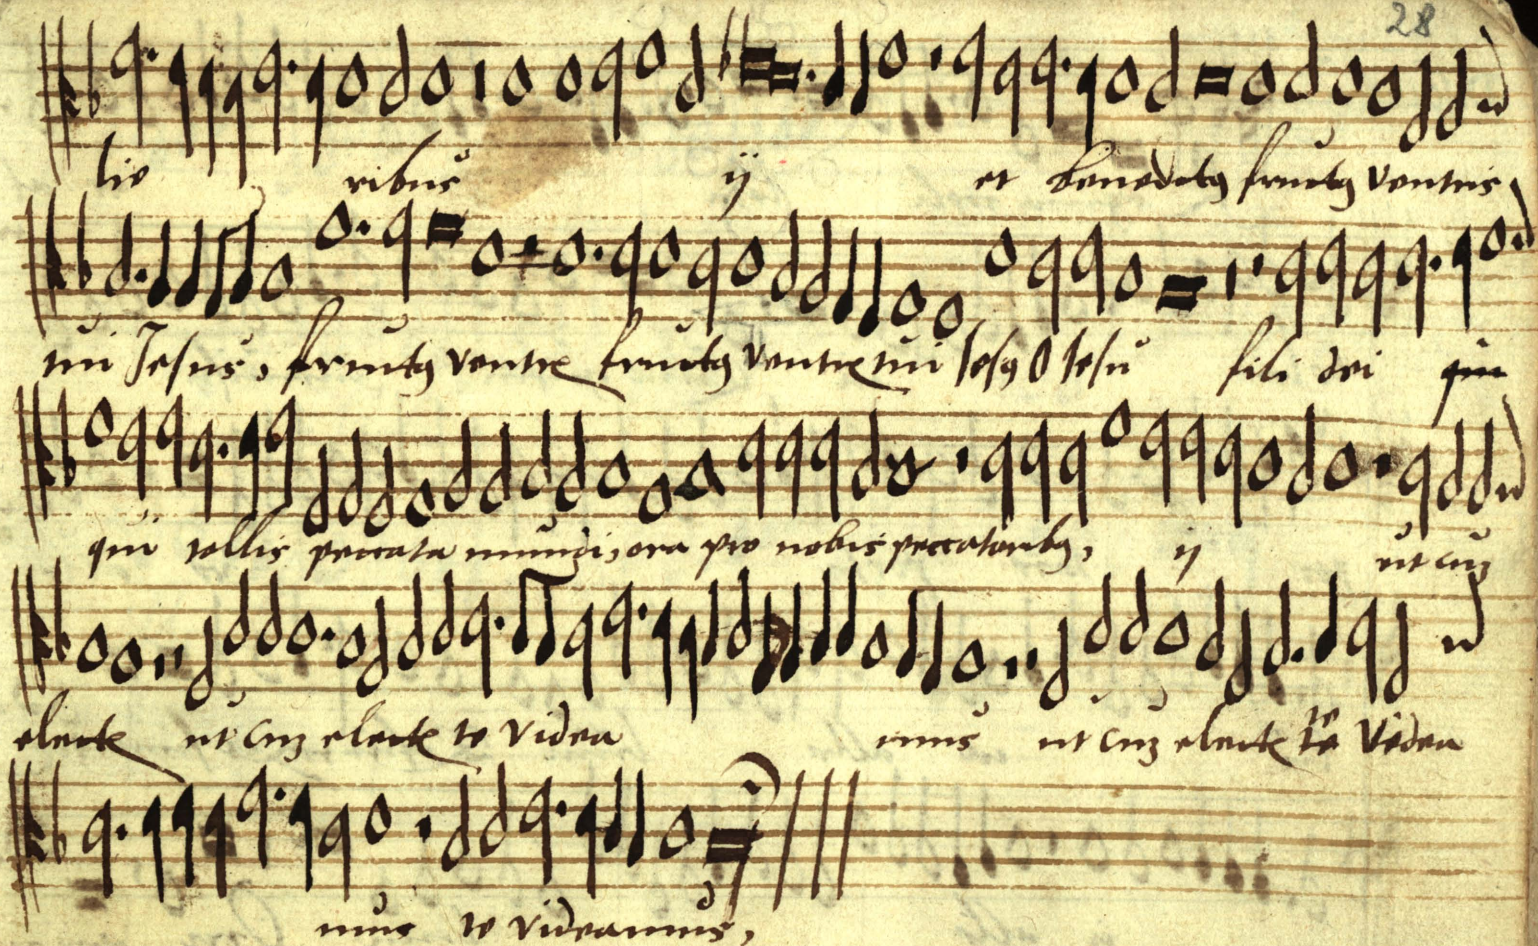 28
lie ribus ij et benedictꝯ fructꝯ ventris,
tui Jesus, fructꝯ ventrꝭ fructꝯ ventrꝭ tui Iesꝯ O Iesu fili dei qui
qui tollis peccata mundi, ora pro nobis peccatoribꝯ, ij ut cuꝫ
electꝭ ut cuꝫ electꝭ te videa mus ut cuꝫ electꝭ te te videa
mus te videamus,